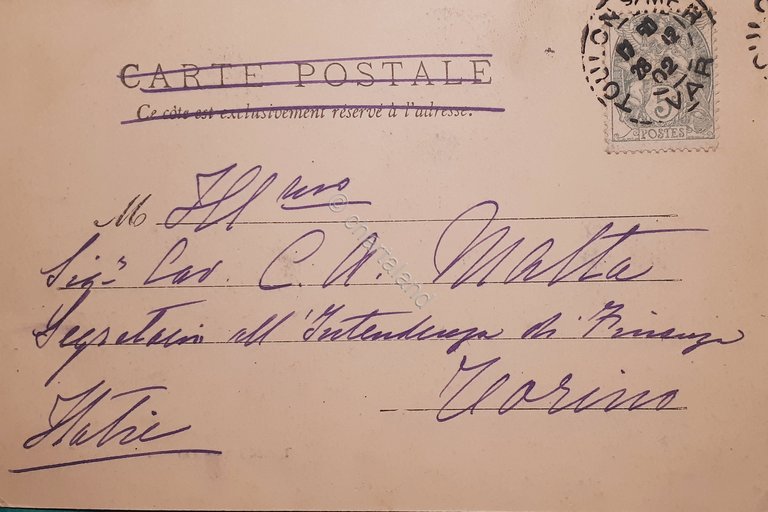 CARTE POSTALE
Ce côté est exclusivement réservé à l'adresse.
TOULON VAR
02
5
POSTES
M Ill mo
Sigr Cav. C. A. Malta
Segretario all'Intendenza di Finanza
Torino
Italie
© cartaland